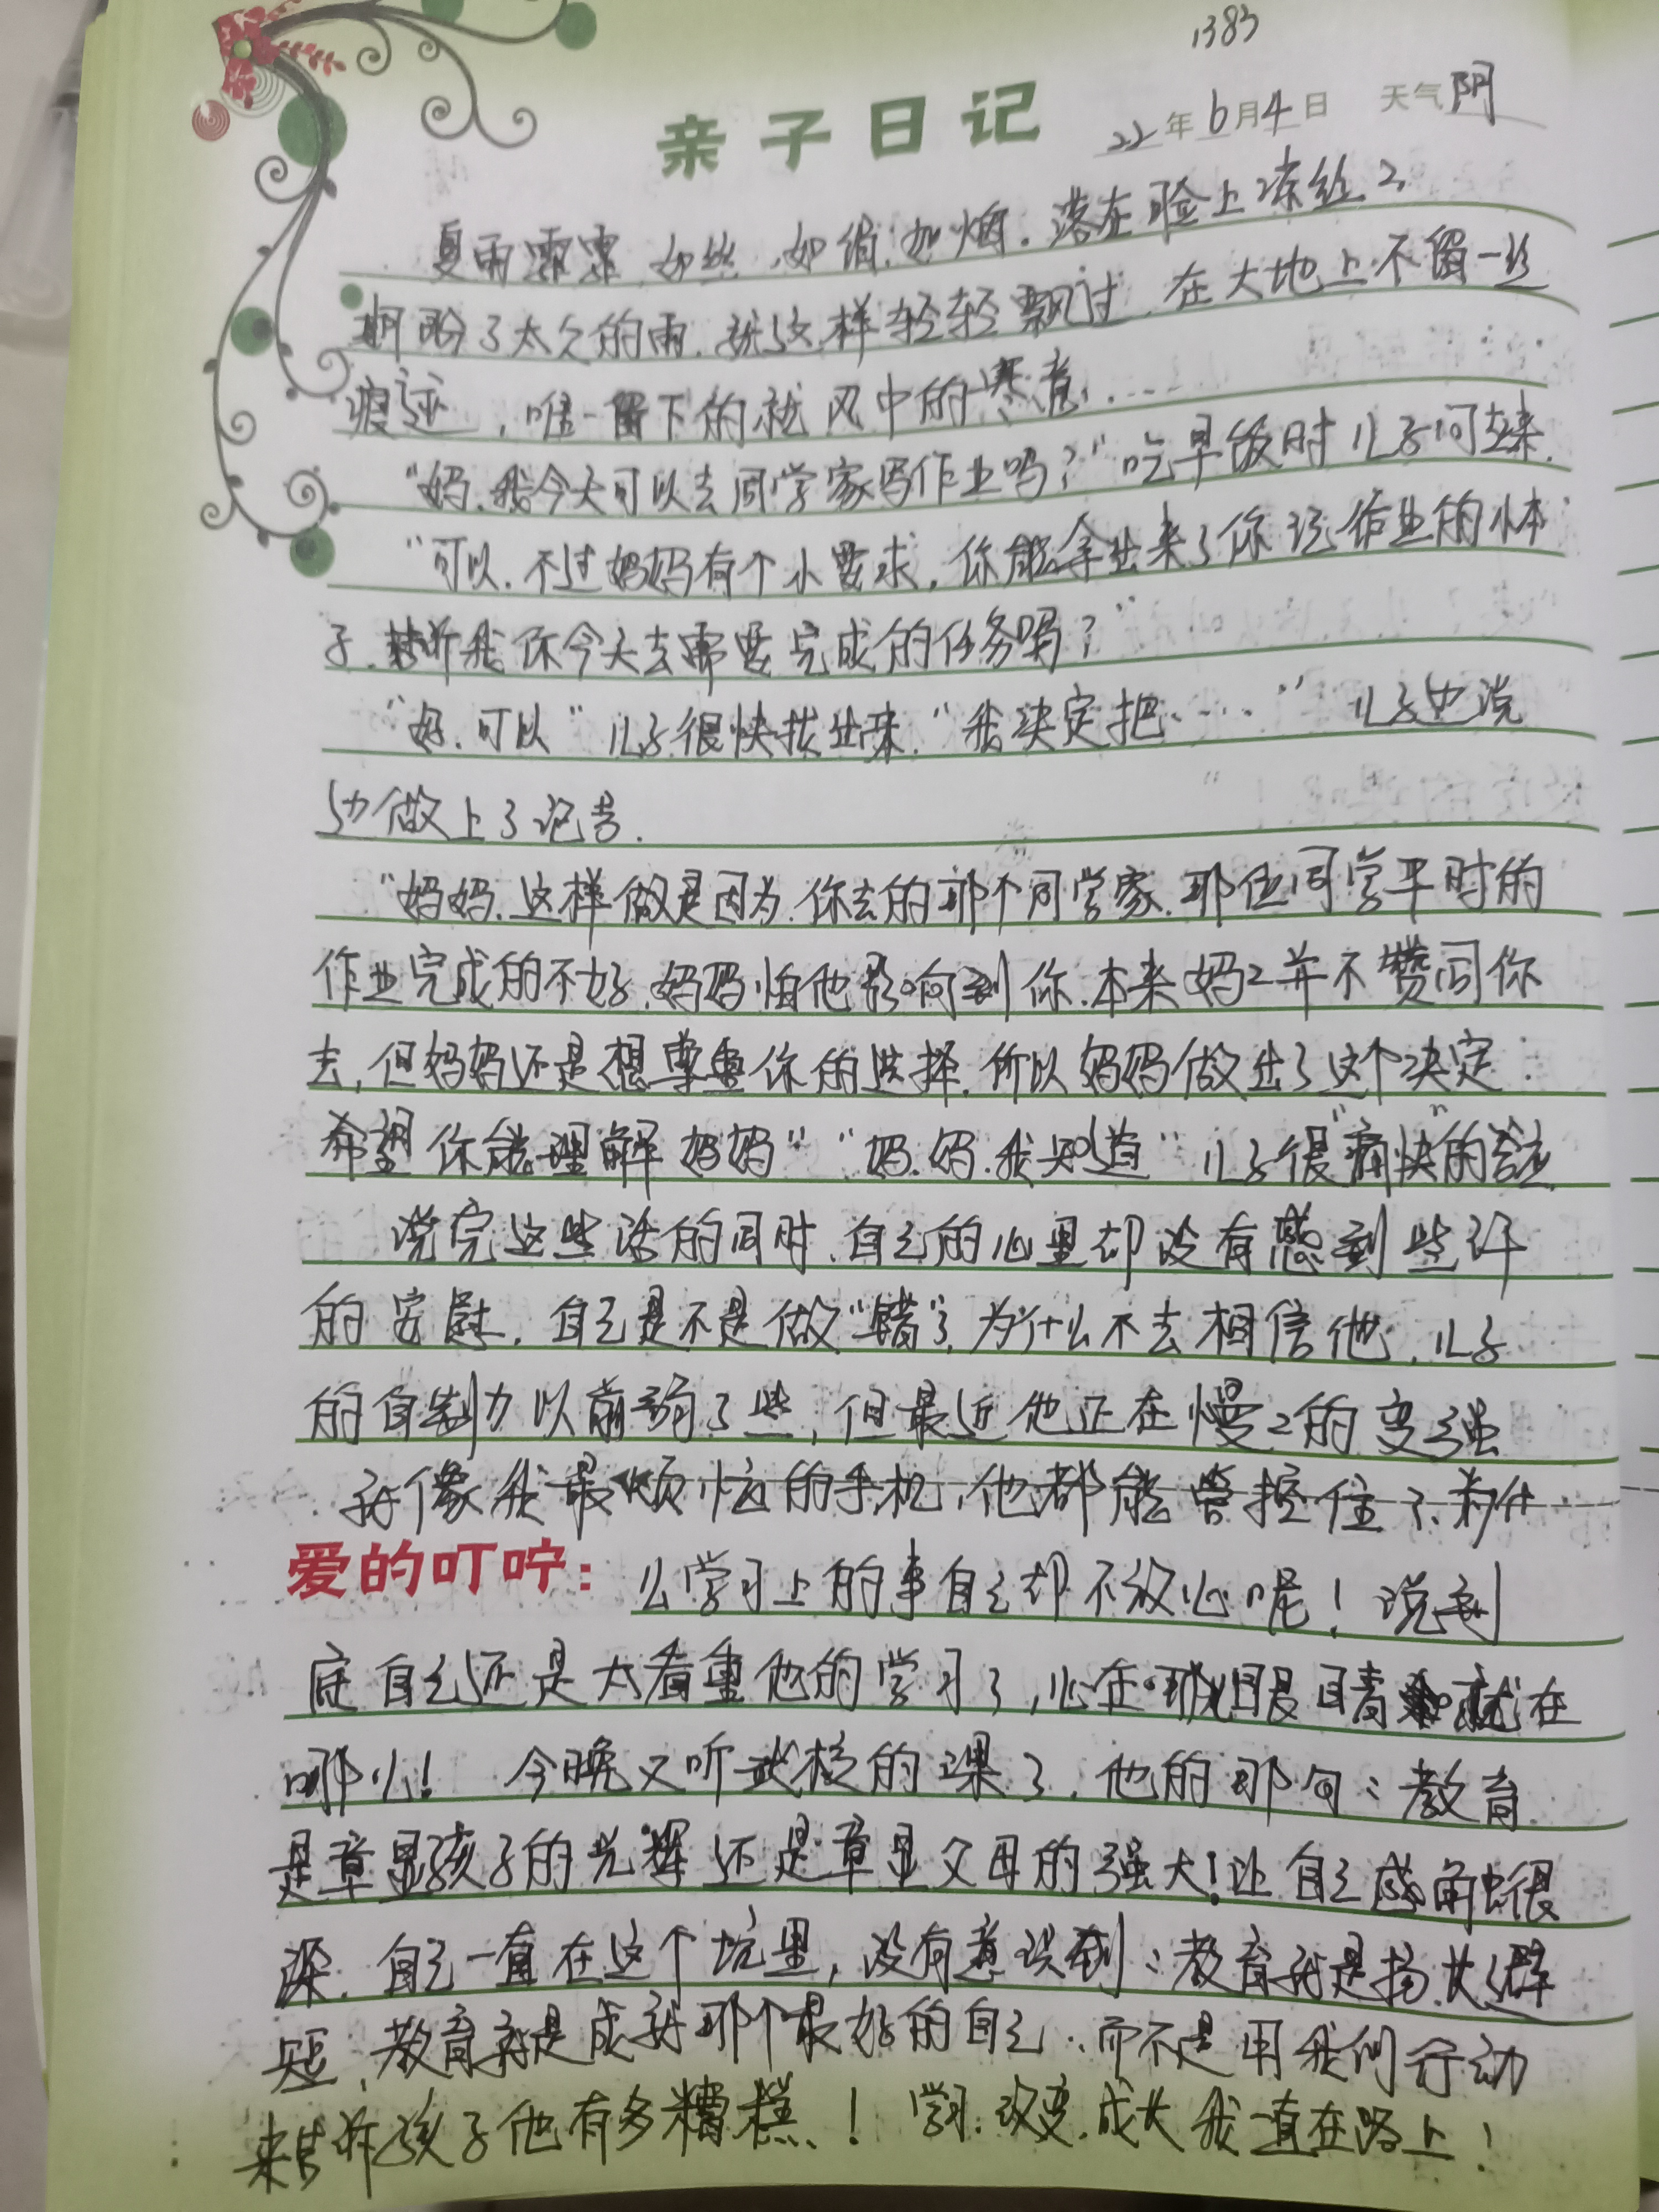 1383
亲子日记 22年6月4日 天气阴
夏雨霏霏,如丝,如绢,如烟。落在脸上凉丝々
期盼了太久的雨,就这样轻轻飘过,在大地上不留一丝
痕迹,唯一留下的就风中的寒意……
"妈,我今天可以去同学家写作业吗?"吃早饭时儿子问起来.
"可以,不过妈妈有个小要求,你能拿出来了你记作业的小本
子,告诉我你今天去需要完成的任务吗?"
"好,可以"儿子很快找出来,"我决定把……"儿子边说
边做上了记号.
"妈妈,这样做是因为,你去的那个同学家,那位同学平时的
作业完成的不好,妈妈怕他影响到你,本来妈々并不赞同你
去,但妈妈还是想尊重你的选择,所以妈妈做出了这个决定:
希望你能理解妈妈""妈、妈,我知道"儿子很"痛快"的答应
说完这些话的同时,自己的心里却没有感到些许
的安慰,自己是不是做"错"了,为什么不去相信他,儿子
的自制力以前弱了些,但最近他正在慢々的变强
就像我最烦恼的手机,他都能管控住了,为什
爱的叮咛:么学习上的事自己却不放心呢!说到
底自己还是太看重他的学习了,心在哪儿眼睛就在
哪儿!今晚又听武校的课了,他的那句:教育
是章显孩子的光辉还是章显父母的强大!让自己感触很
深,自己一直在这个坑里,没有意识到:教育就是扬长避
短,教育就是成就那个最好的自己,而不是用我们行动
来告诉孩子他有多糟糕!学习,改变,成长我一直在路上!